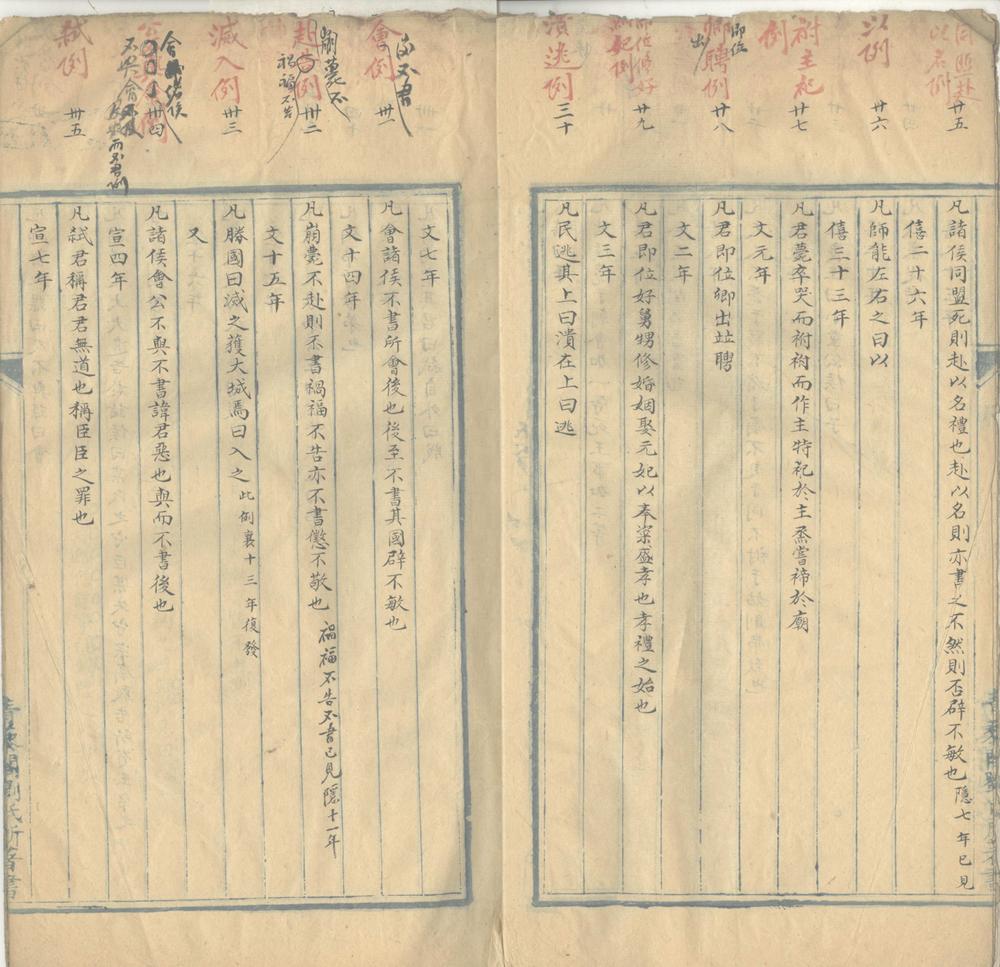 同盟赴
以名例
廿五
以例
廿六
祔主祀
例
廿七
即位
卿出
聘例
廿八
即位修好
娶元妃例
廿九
潰逃例
三十
凡諸侯同盟死則赴以名禮也赴以名則亦書之不然則否辟不敏也 隱七年已見
僖二十六年
凡師能左右之曰以
僖三十三年
凡君薨卒哭而祔祔而作主特祀於主烝嘗禘於廟
文元年
凡君即位卿出竝聘
文二年
凡君即位好舅甥修婚姻娶元妃以奉粢盛孝也孝禮之始也
文三年
凡民逃其上曰潰在上曰逃
會例
卅一
崩薨不
赴告例
禍福不告
卅二
滅入例
卅三
會諸侯
卅四
弑例
卅五
文七年
凡會諸侯不書所會後也後至不書其國辟不敏也
文十四年
凡崩薨不赴則不書禍福不告亦不書懲不敬也 禍福不告不書已見隱十一年
文十五年
凡勝國曰滅之獲大城焉曰入之 此例襄十三年復發
又
凡諸侯會公不與不書諱君惡也與而不書後也
宣四年
凡弑君稱君君無道也稱臣臣之罪也
宣七年